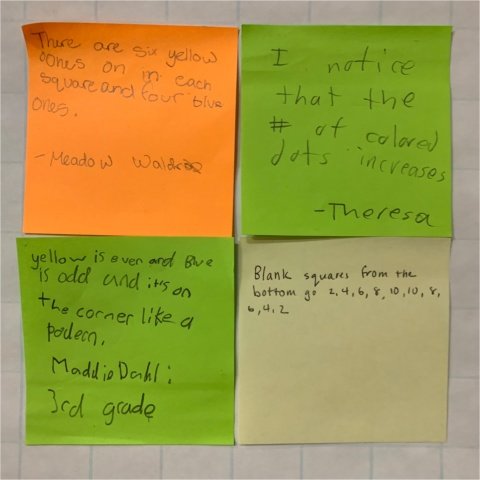 There are six yellow
ones on in each
square and four blue
ones.
- Meadow
I notice
that the
# of colored
dots increases
- Theresa
yellow is even and Blue
is odd and it's on
the corner like a
padern.
Maddie Dahl:
3rd grade
Blank squares from the
bottom go 2, 4, 6, 8, 10, 10, 8,
6, 4, 2